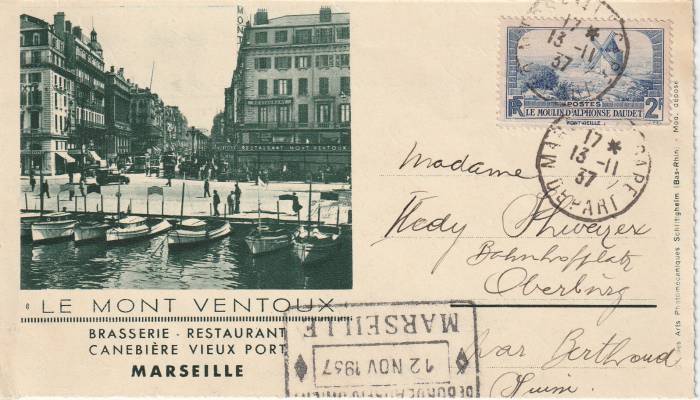 MONT
RESTAURANT
RESTAURANT MONT VENTOUX
LE MONT VENTOUX
BRASSERIE - RESTAURANT
CANEBIÈRE VIEUX PORT
MARSEILLE
17 *
13 -11
37
POSTES
LE MOULIN D'ALPHONSE DAUDET
FONTVIEILLE
RF
2F
MARSEILLE GARE
17 *
13 -11
37
DÉPART
Madame
Hedy Schwarzer
Bahnhofplatz
Oberburg
par Berthoud
Suisse
MARSEILLE
12 NOV 1937
Arts Photomécaniques Schiltigheim (Bas-Rhin) - Mod. déposé